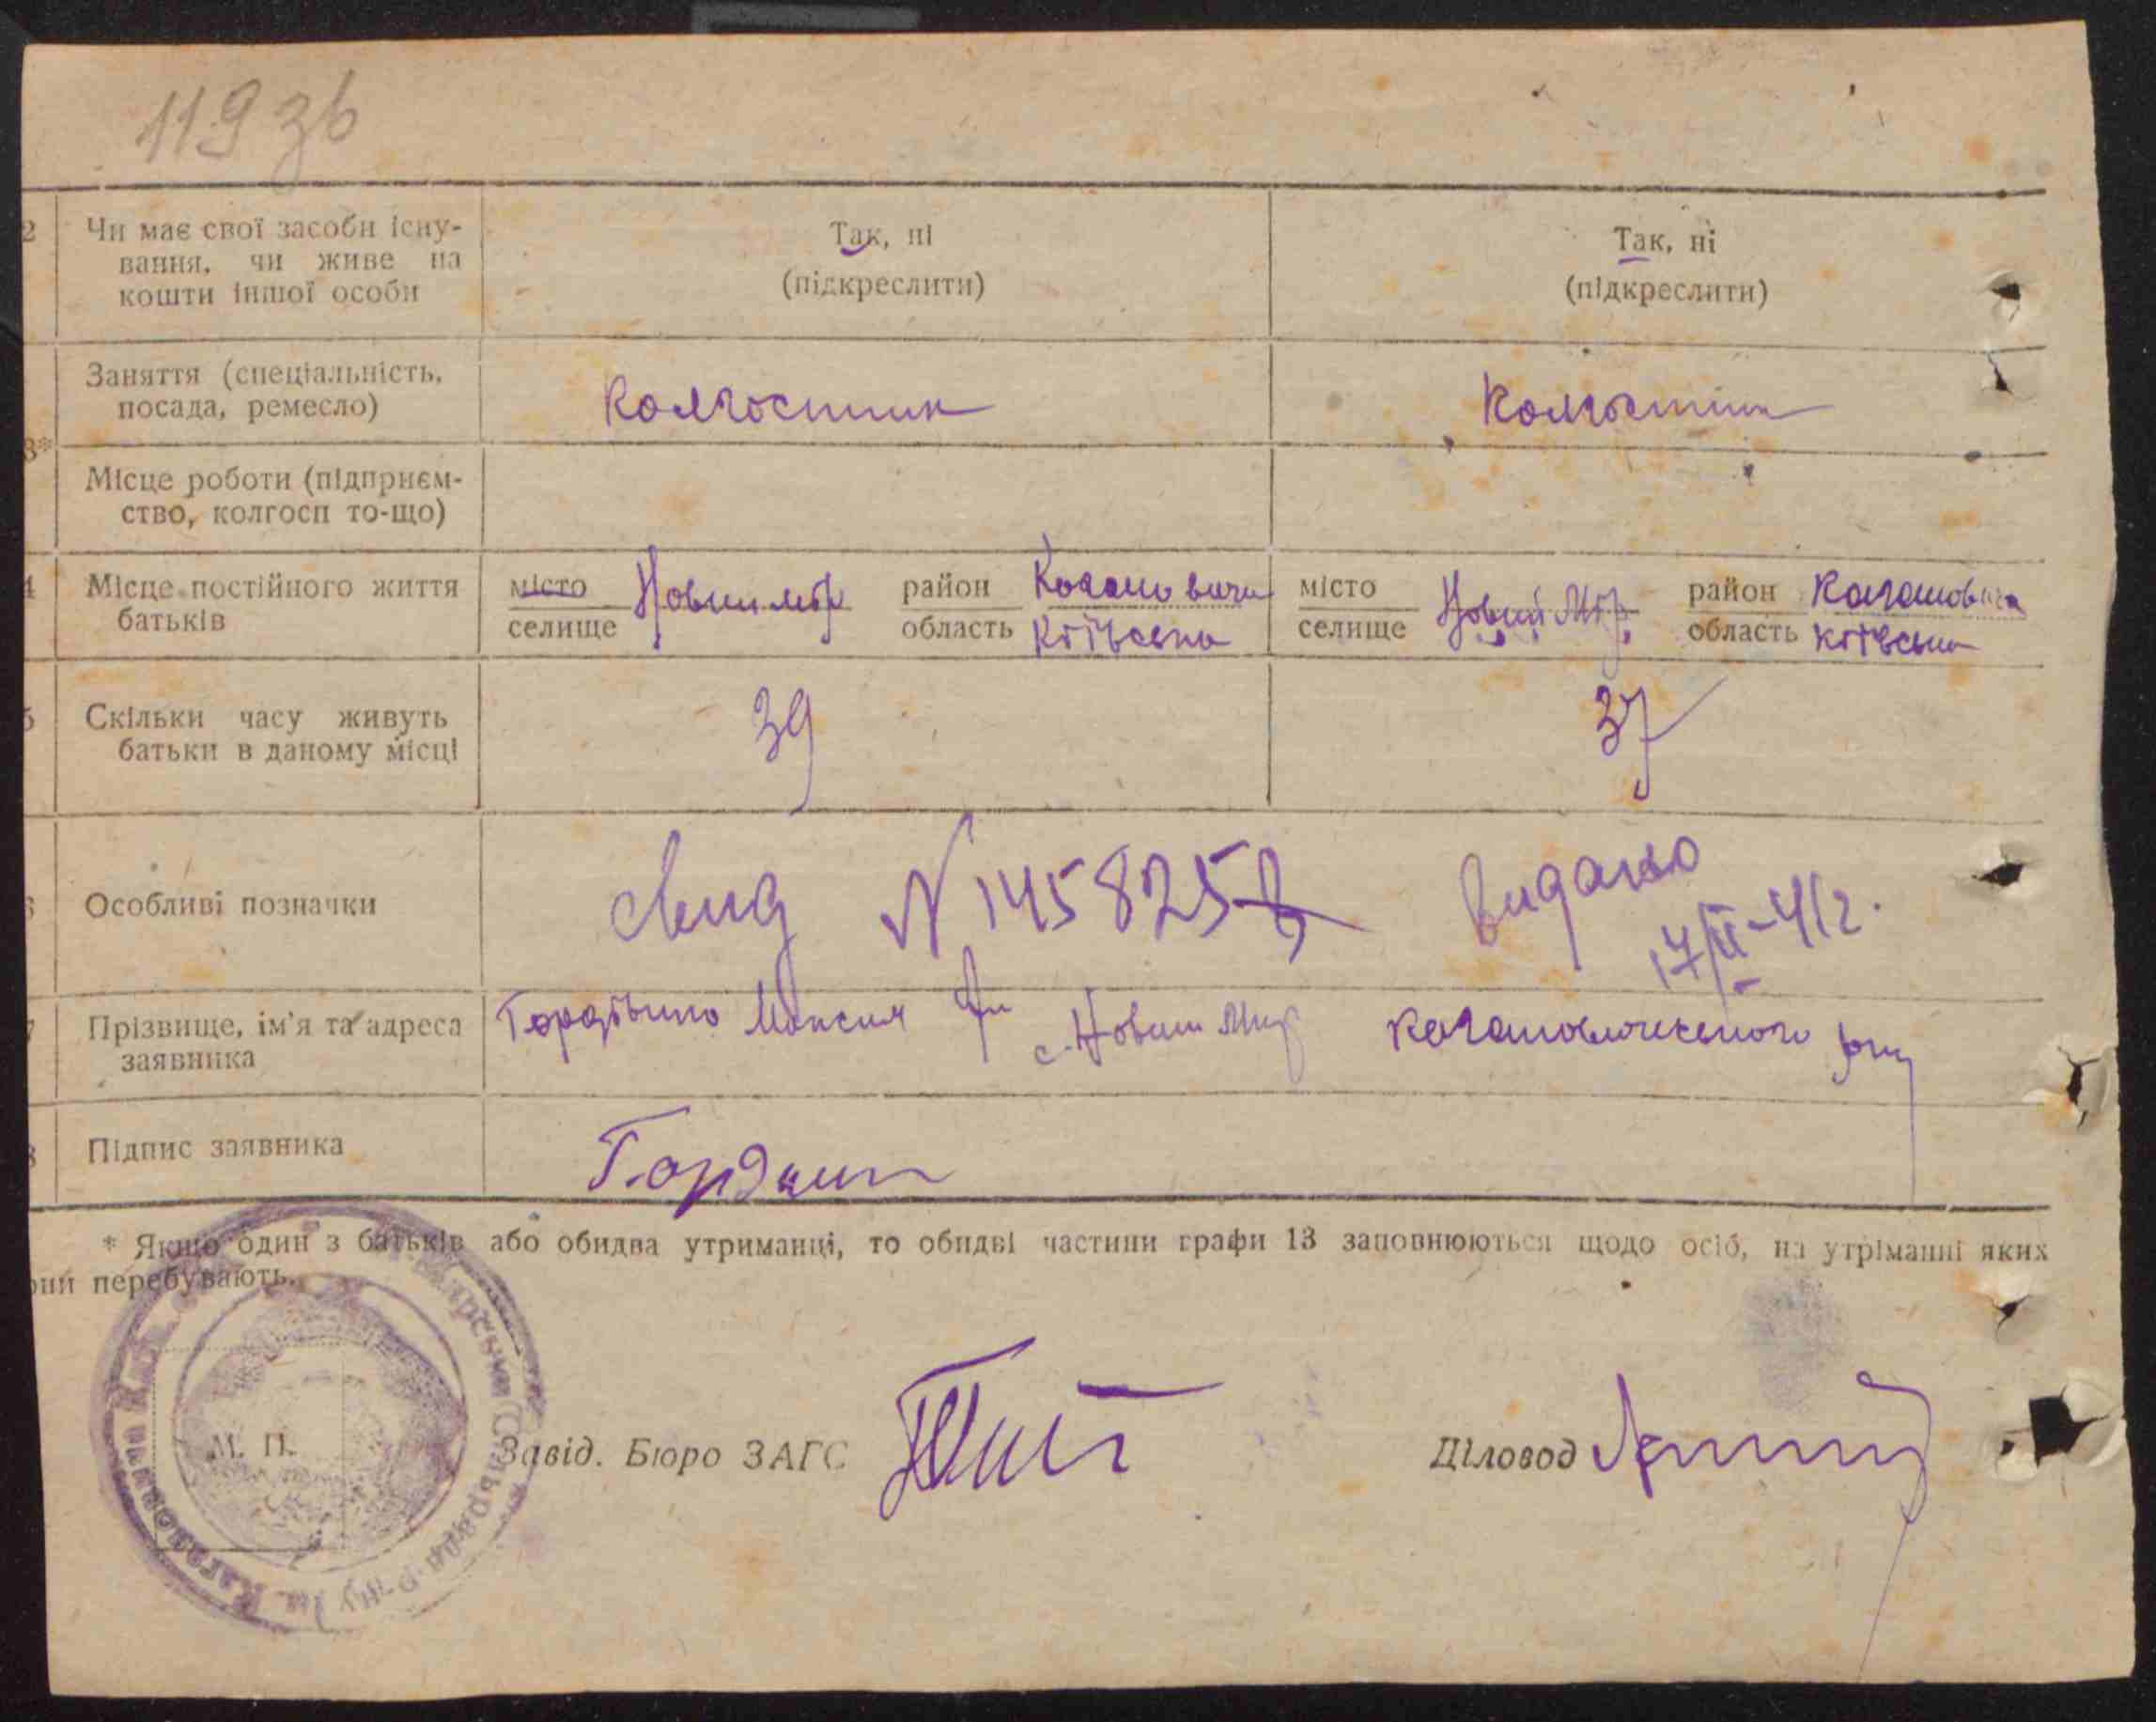 119 зв
2 Чи має свої засоби існу- Так, ні Так, ні
вання, чи живе на (підкреслити) (підкреслити)
кошти іншої особи
Заняття (спеціальність, Колгоспник Колгоспник
посада, ремесло)
3*
Місце роботи (підприєм-
ство, колгосп то-що)
4 Місце постійного життя місто Новий мір район Каганович місто Новий Мір район Каганович
батьків селище область Київська селище область Київська
5 Скільки часу живуть 39 37
батьки в даному місці
6 Особливі позначки Свид N 145825 видано
17/II-41 г.
7 Прізвище, ім'я та адреса Максим с. Новий Мир Кагановического р-ну
заявника
8 Підпис заявника
* Якщо один з батьків або обидва утриманці, то обидві частини графи 13 заповнюються щодо осіб, на утріманні яких
они перебувають.
М. П. Завід. Бюро ЗАГС Діловод